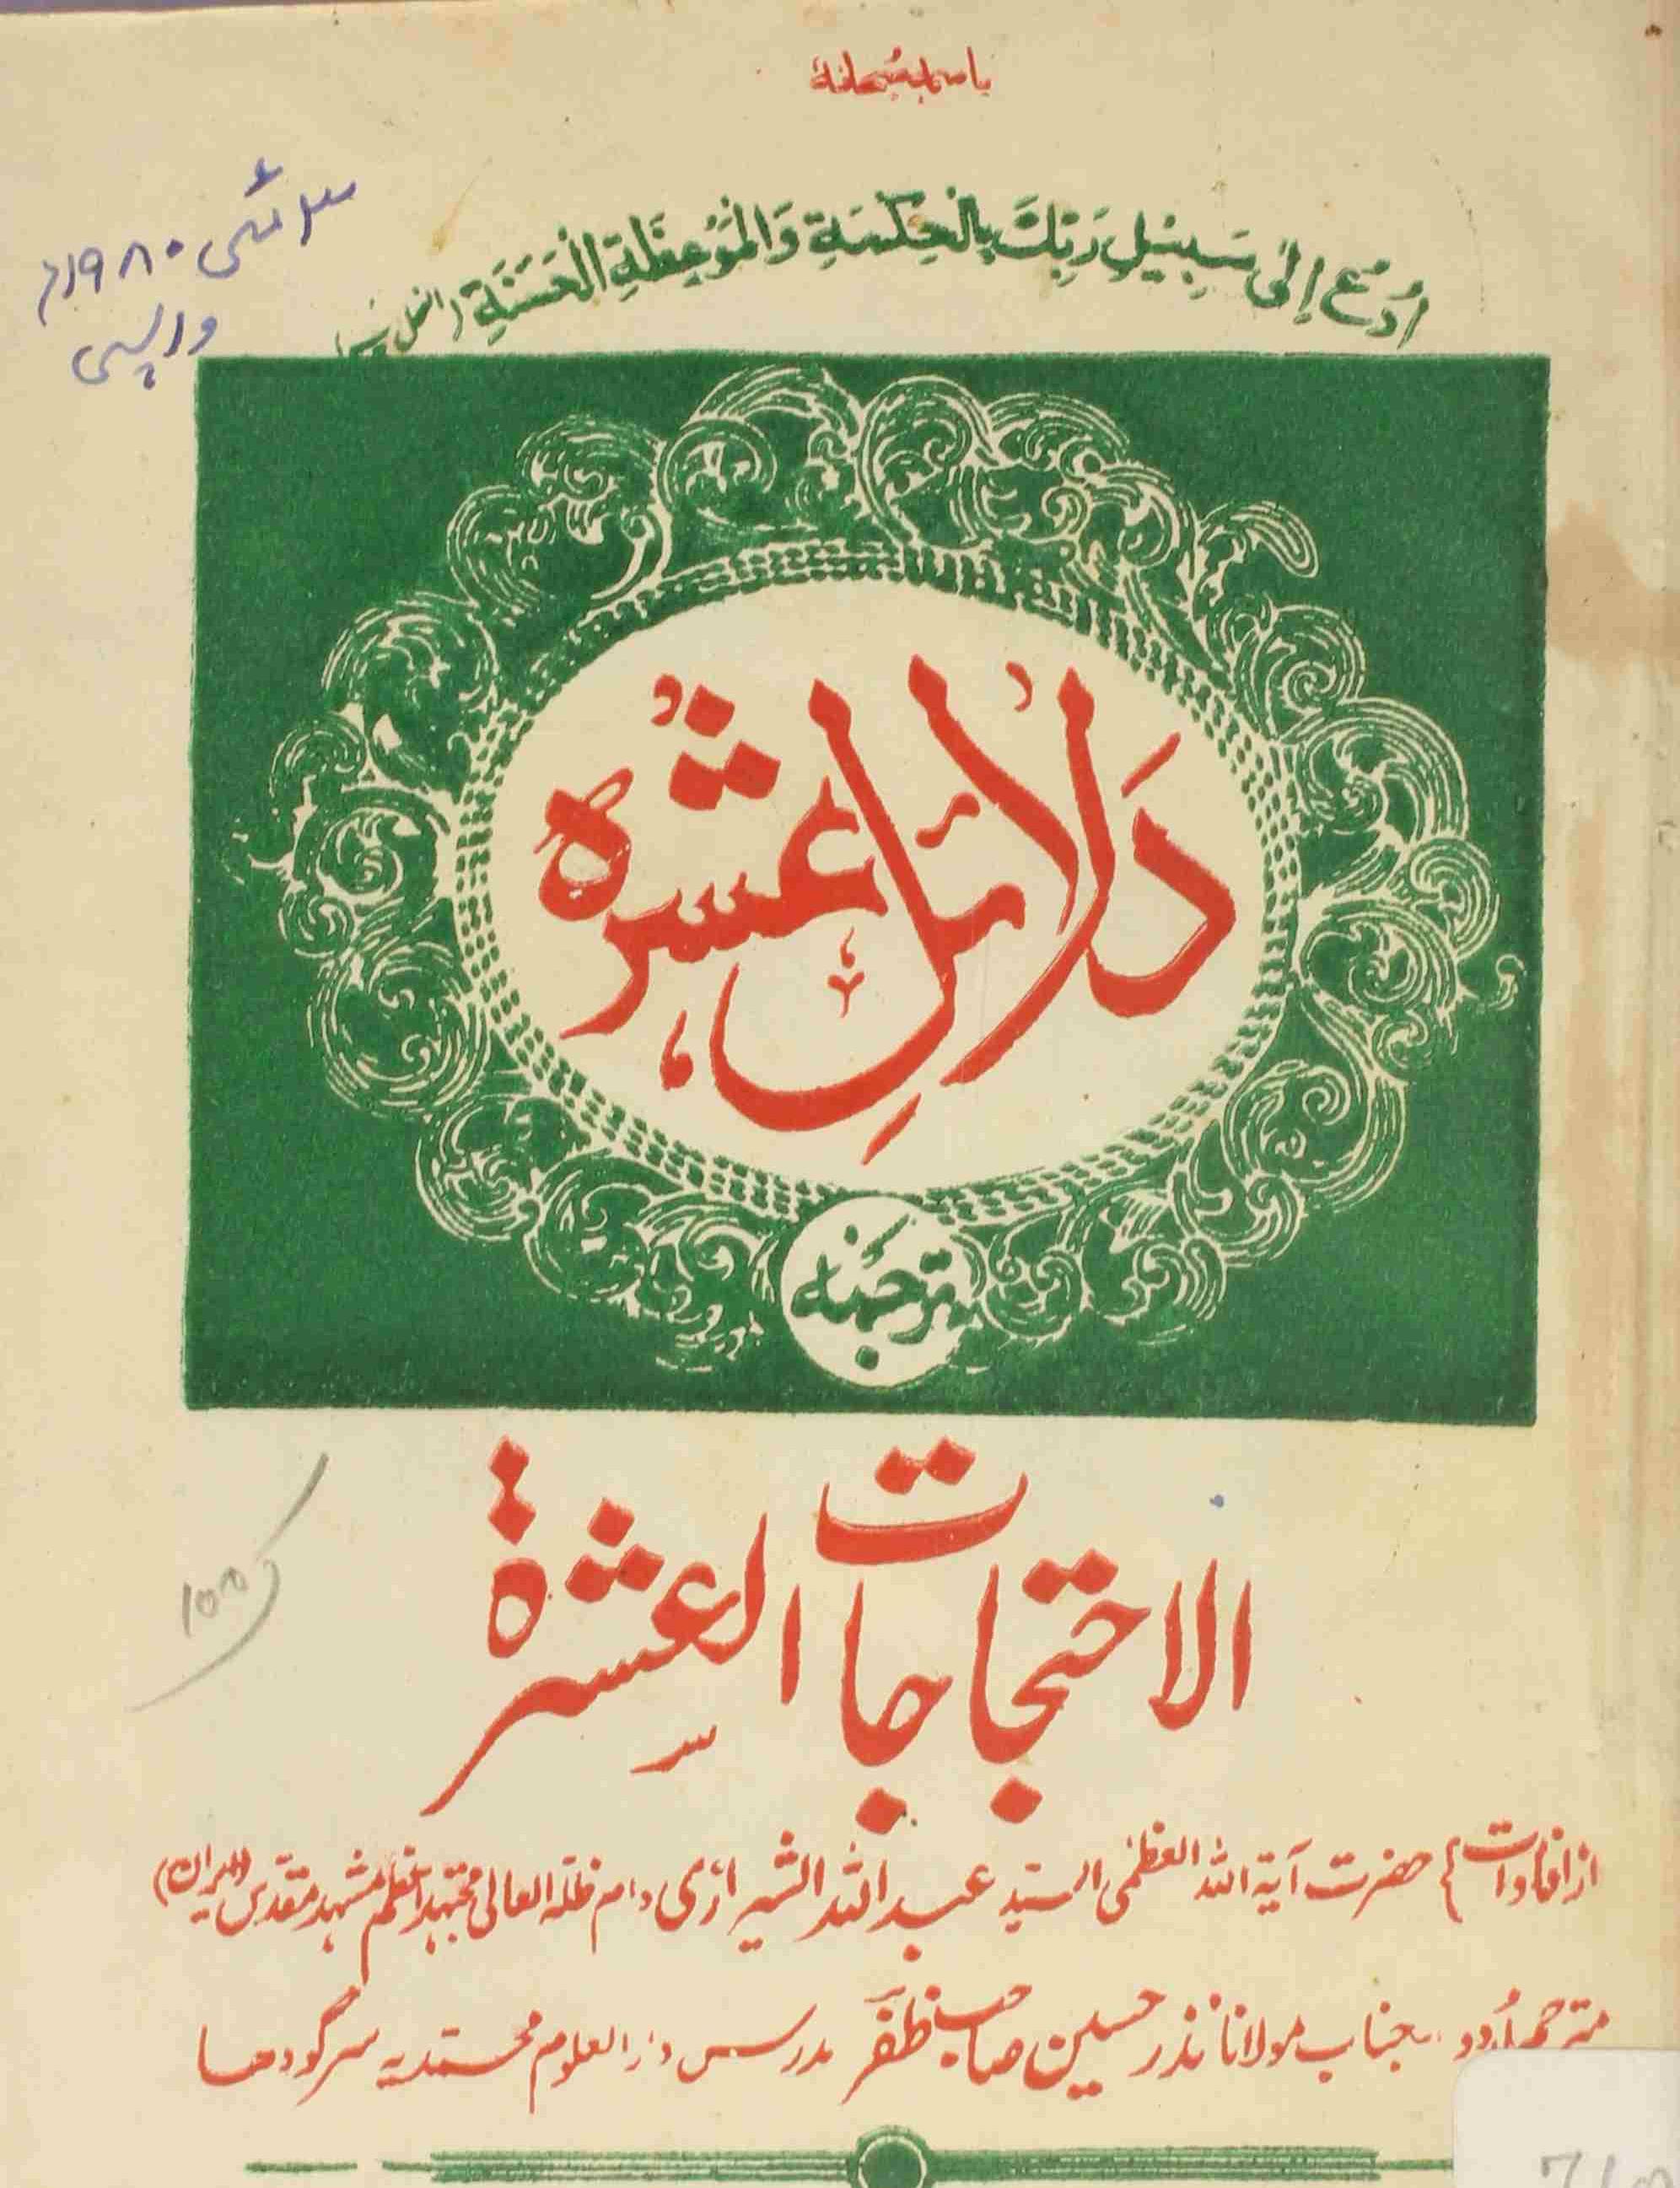 باسمہ سبحانہٗ
اُدْعُ اِلٰی سَبِیْلِ رَبِّكَ بِالْحِكْمَةِ وَالْمَوْعِظَةِ الْحَسَنَةِ
۳ مئی ۱۹۸۰ء
واپسی
دَلائلِ عشرہ
ترجمہ
الاحتجاجات العشرة
از افادات حضرت آیة اللہ العظمٰی السید عبد اللہ الشیرازی دام ظلہ العالی مجتہد اعظم مشہد مقدس (ایران)
مترجم اُردو جناب مولانا نذر حسین صاحب ظفر مدرس دار العلوم محمدیہ سرگودھا